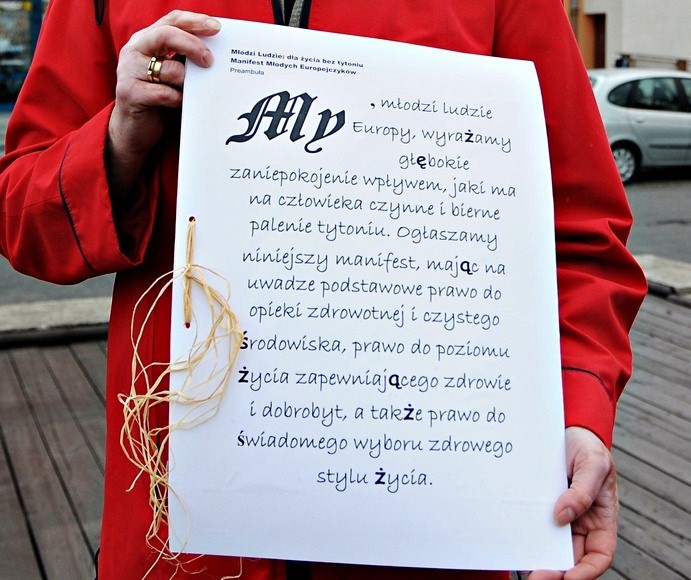 Młodzi Ludzie: dla życia bez tytoniu
Manifest Młodych Europejczyków
Preambuła
My, młodzi ludzie
Europy, wyrażamy
głębokie
zaniepokojenie wpływem, jaki ma
na człowieka czynne i bierne
palenie tytoniu. Ogłaszamy
niniejszy manifest, mając na
uwadze podstawowe prawo do
opieki zdrowotnej i czystego
środowiska, prawo do poziomu
życia zapewniającego zdrowie
i dobrobyt, a także prawo do
świadomego wyboru zdrowego
stylu życia.